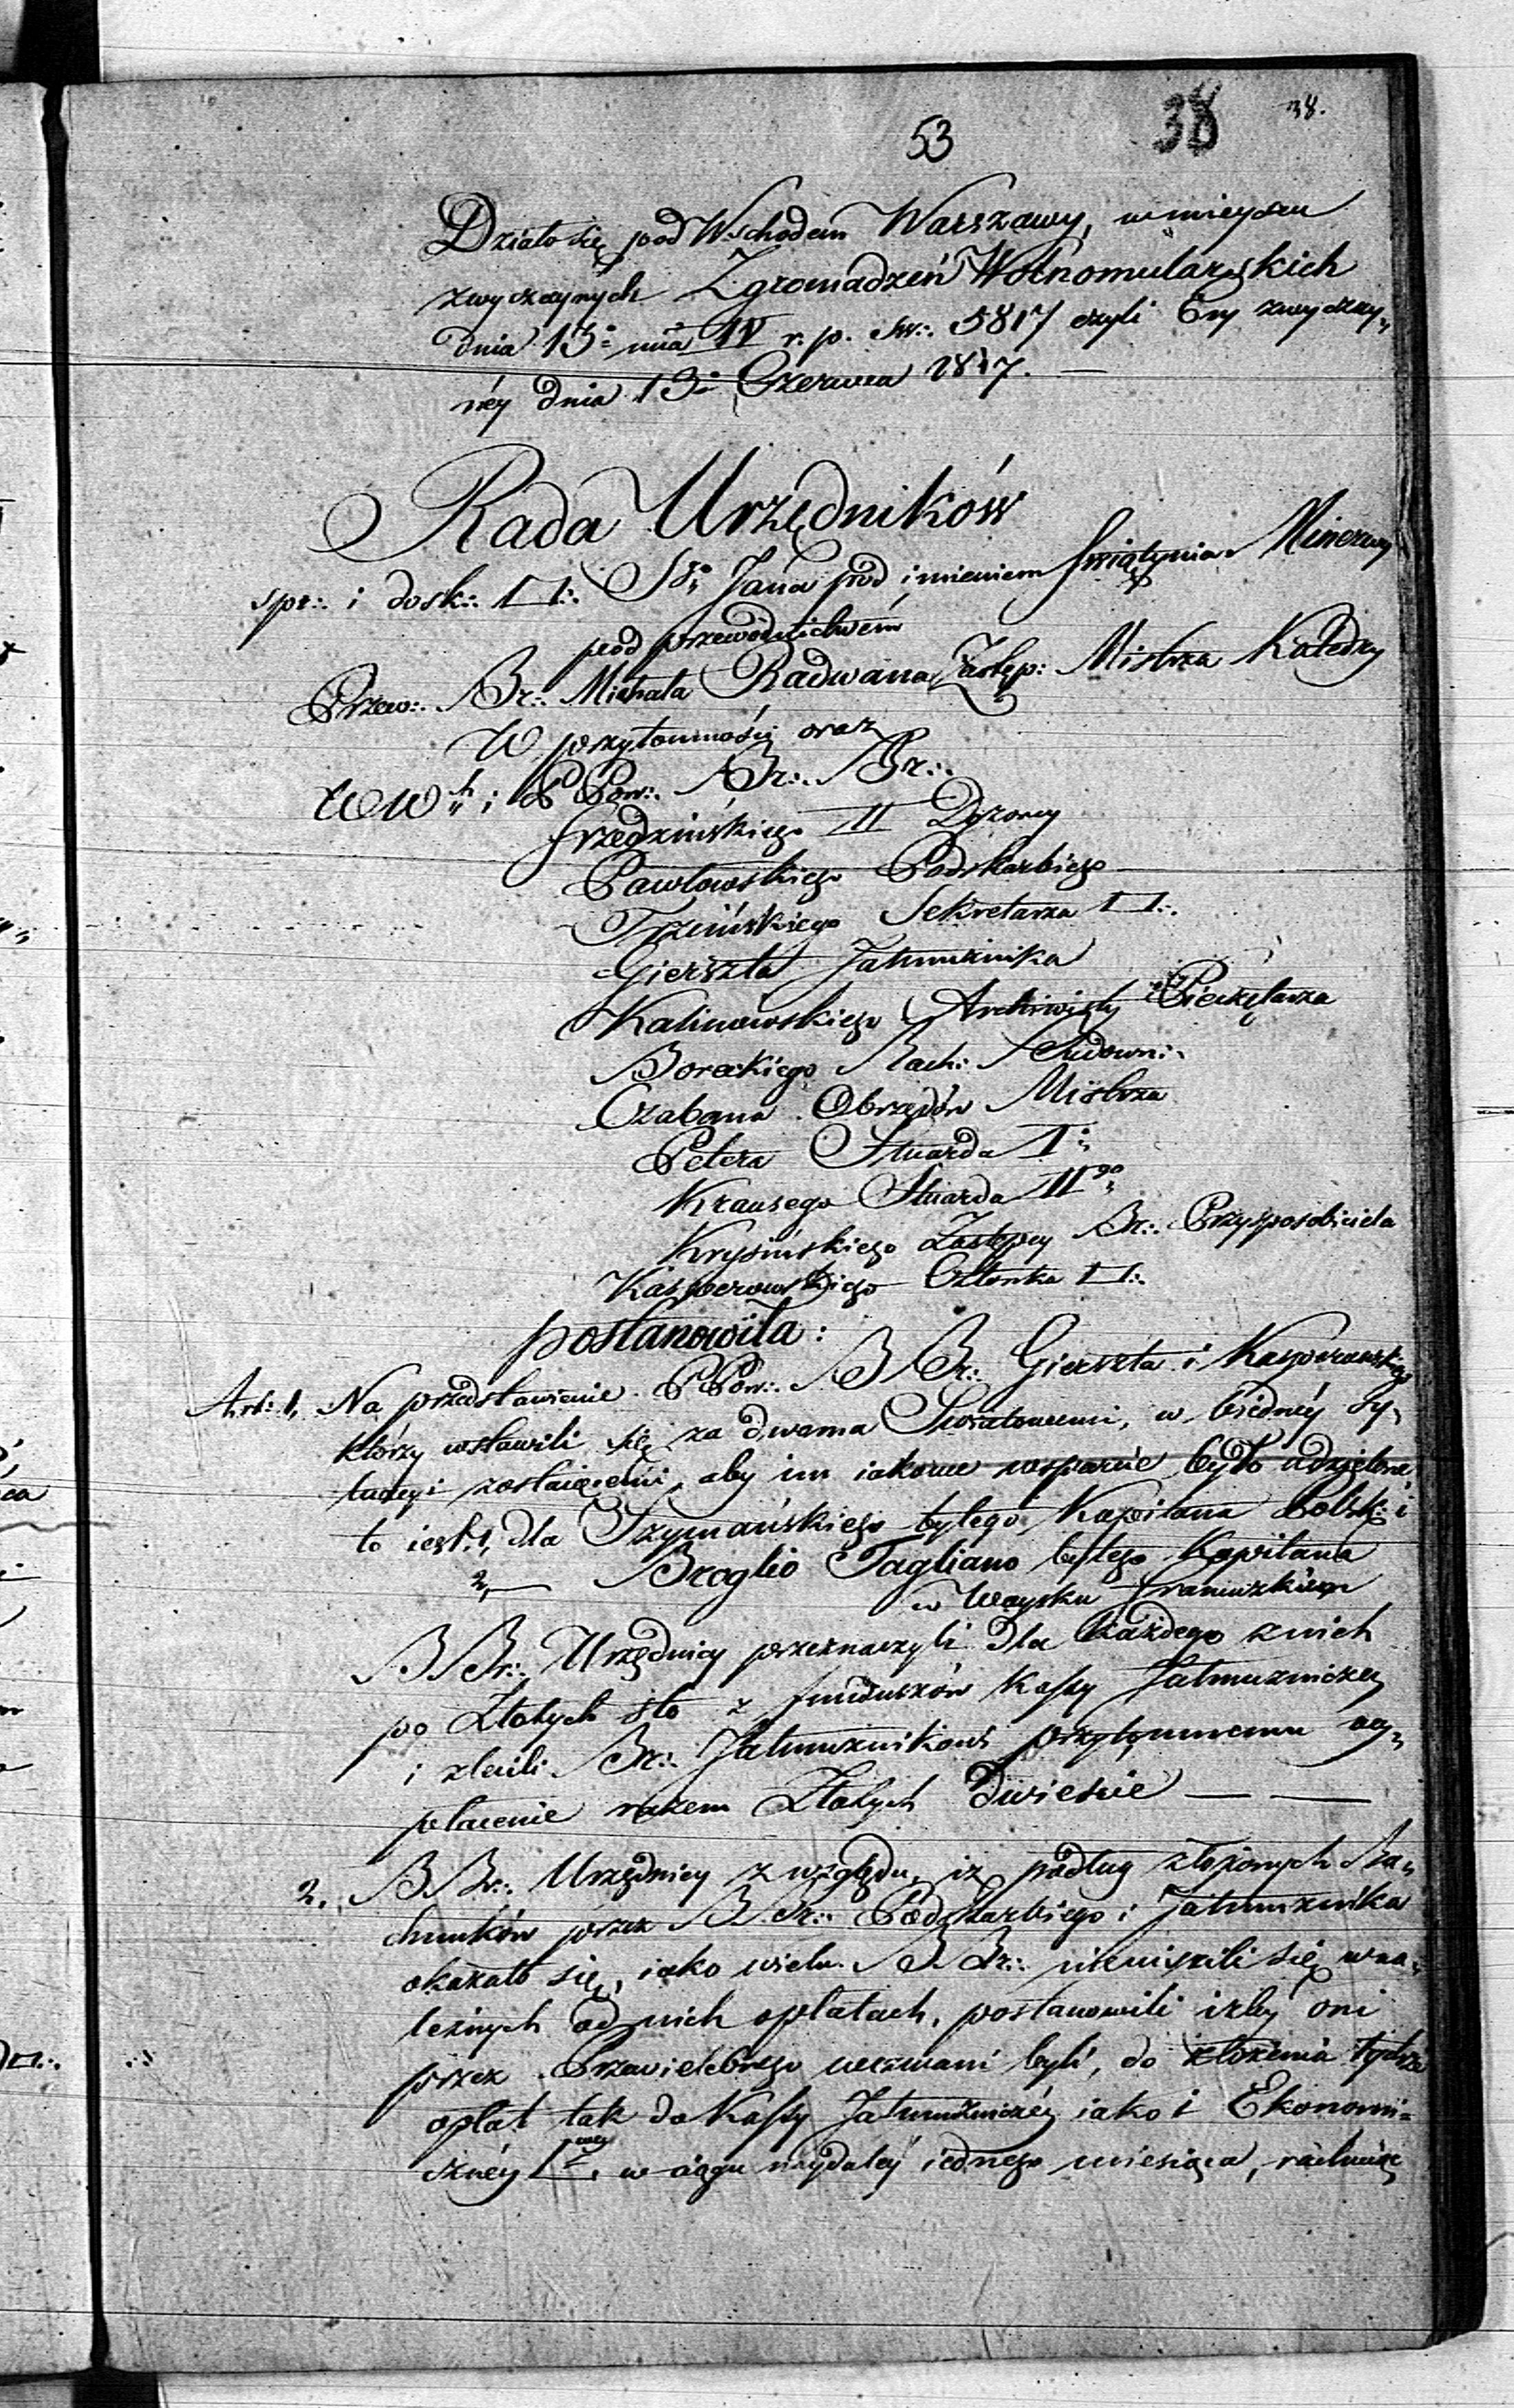 53 38 38.
Działo się pod Wschodem Warszawy, w mieyscu
zwyczaynych Zgromadzeń Wolnomularskich
dnia 13º mca IV r. p. Św∴ 5817 czyli Ery zwyczay„
néy dnia 13º Czerwca 1817. —
Rada Urzędników
spr∴ i dosk∴ ▭∴ Sgo Jana pod imieniem Świątynia Minerwy
pod przewodnictwem
Przew∴ Br∴ Michała Radwana Zastęp: Mistrza Katedry
W przytomności oraz
WWch i PPow∴ Br∴ Br∴
Frzedzińskiego II Dozorcy
Pawłowskiego Podskarbiego
Trzcińskiego Sekretarza ▭∴
Gierszta Jałmużnika
Kalinowskiego Archiwisty i Pieczętarza
Boreckiego Budowni:
Czabana Obrzędów Mistrza
Petera Stuarda I:
Krausego Stuarda IIgo
Krysińskiego Zastępcy Br∴ Przysposobiciela
Kasperowskiego Członka ▭∴
postanowiła:
Art: 1, Na przedstawienie PPow∴ BBr∴ Gierszta i Kasperowskiego
którzy wstawili się za dwoma Światowemi, w biednéy Sy„
tuacyi zostaiącemi, aby im iakowe wsparcie było udzielone
to iest. 1, dla Szymańskiego byłego Kapitana Polsk: i
2, — Broglio Tagliano byłego Kapitana
w Woysku francuzkiem
BBr∴ Urzędnicy przeznaczyli dla każdego z nich
po Złotych sto z funduszów Kassy Jałmużniczey
i zlecili Br∴ Jałmużnikowi przytomnemu wy„
płacenie razem Złotych Dwieście — —
2. BBr∴ Urzędnicy z względu, iż podług złożonych Ra„
chunków przez BBr∴ Podskarbiego i Jałmużnika
okazało się, iako wielu BBr∴ nieuiścili się w na„
leżnych od nich opłatach, postanowili iżby oni
przez Przewielebnego wezwani byli, do złożenia tychże
opłat tak do Kassy Jałmużniczéy iako i Ekonomi=
cznéy w ciągu naydaléy iednego miesiąca, rachuiąc